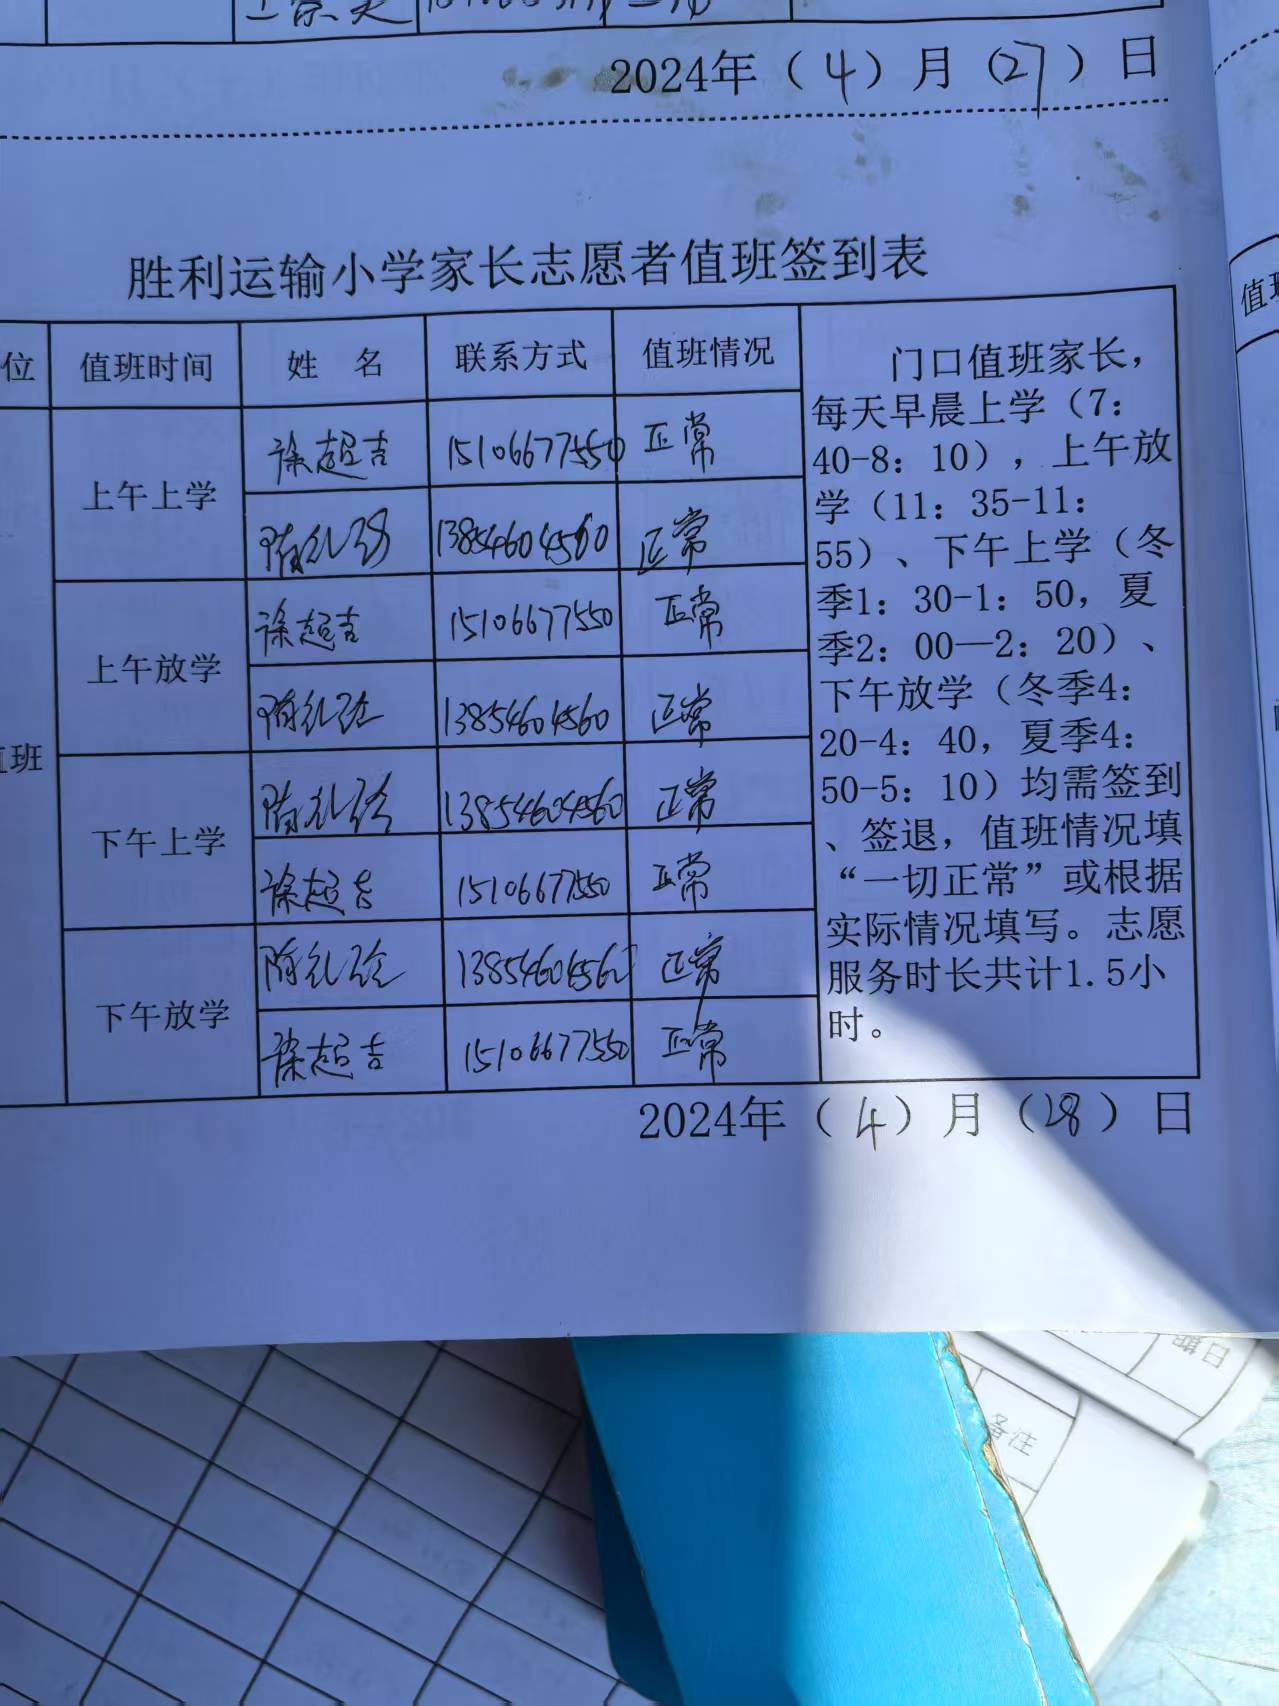 2024年（4）月（27）日
胜利运输小学家长志愿者值班签到表
位 值班时间 姓 名 联系方式 值班情况
上午上学 徐超吉 15106677550 正常
陈礼 13854604560 正常
上午放学 徐超吉 15106677550 正常
陈礼 13854604560 正常
值班
下午上学 陈礼 13854604560 正常
徐超吉 15106677550 正常
下午放学 陈礼 13854604560 正常
徐超吉 15106677550 正常
门口值班家长，
每天早晨上学（7：
40-8：10），上午放
学（11：35-11：
55）、下午上学（冬
季1：30-1：50，夏
季2：00—2：20）、
下午放学（冬季4：
20-4：40，夏季4：
50-5：10）均需签到
、签退，值班情况填
“一切正常”或根据
实际情况填写。志愿
服务时长共计1.5小
时。
2024年（4）月（28）日
值班
日期
备注